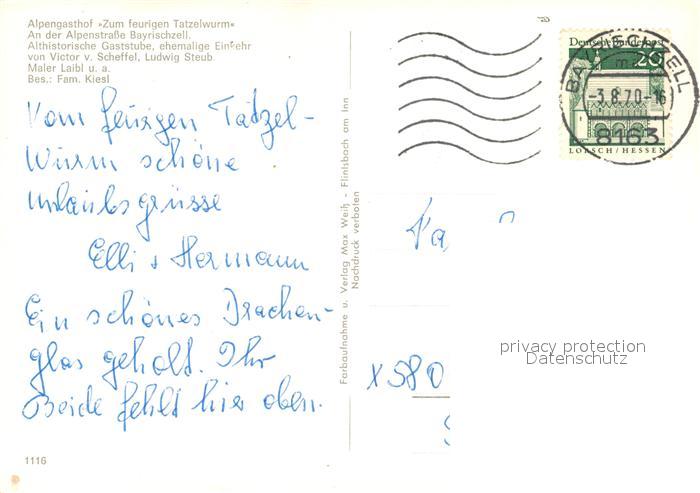 Alpengasthof »Zum feurigen Tatzelwurm«
An der Alpenstraße Bayrischzell.
Althistorische Gaststube, ehemalige Einkehr
von Victor v. Scheffel, Ludwig Steub
Maler Laibl u. a.
Bes.: Fam. Kiesl
Vom feurigen Tatzel-
wurm schöne
Urlaubsgrüsse
Elli + Hermann
Ein schönes Drachen-
glas geholt. Ihr
Beide fehlt hier oben.
1116
Farbaufnahme u. Verlag Max Weiß - Flintsbach am Inn
Nachdruck verboten
Deutsche Bundespost
20
LORSCH/HESSEN
BAYRISCHZELL
-3.8.70-16
8163
X 580
privacy protection
Datenschutz